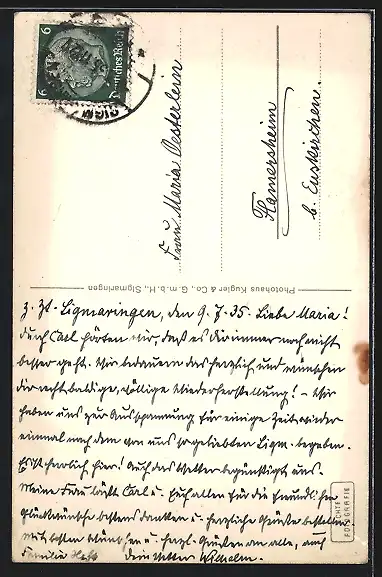 6
Deutsches Reich
6
Frau Maria Oesterlein
Flamersheim
b. Euskirchen.
Photohaus Kugler & Co., G.m.b.H., Sigmaringen
z. Zt. Sigmaringen, den 9. 7. 35. Liebe Maria!
durch Carl hörten wir, daß es dir immer noch nicht
besser geht. Wir bedauern das herzlich und wünschen
dir recht baldige, völlige Wiederherstellung! – Wir
haben uns zur Ausspannung für einige Zeit wieder
einmal nach dem von uns so geliebten Sigm. begeben.
Es ist herrlich hier! Auch das Wetter begünstigt uns.
Meine Frau läßt Carl u. Euch allen für die freundlichen
Glückwünsche bestens danken u. herzliche Grüße bestellen.
Mit besten Wünschen u. herzl. Grüßen an alle, auch
Familie dein Vetter Wilhelm.
ECHTE
FOTOGRAFIE